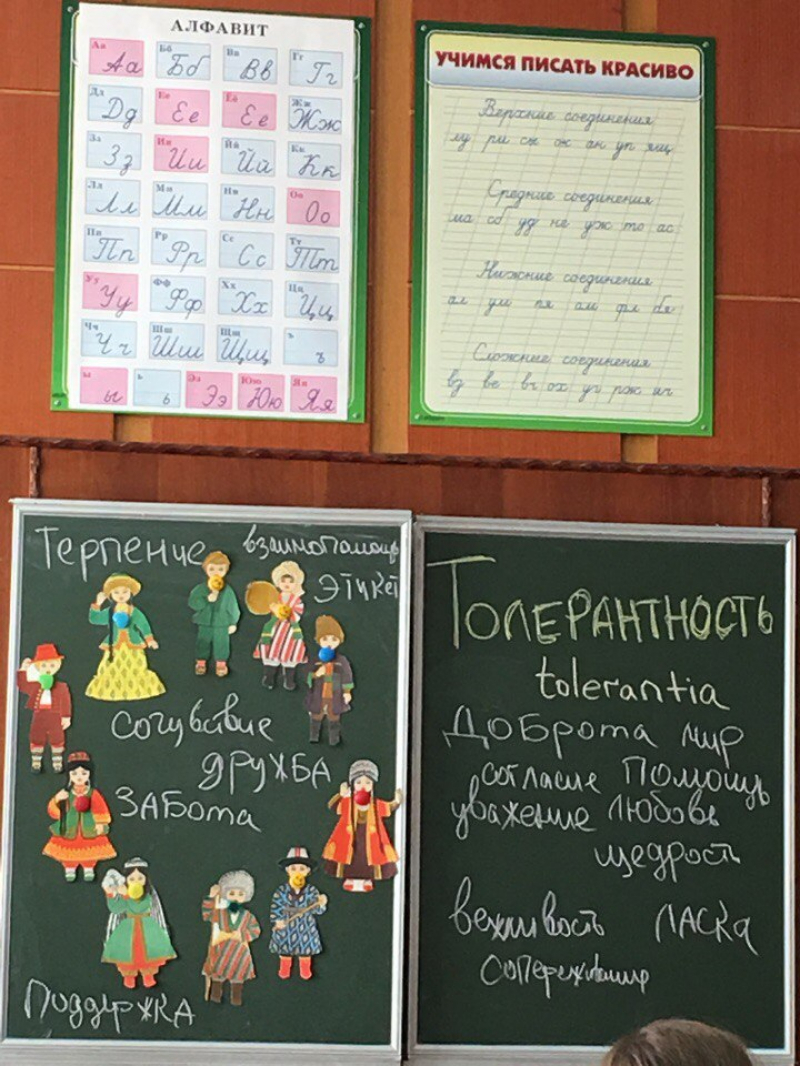 АЛФАВИТ
Аа Бб Вв Гг
Дд Ее Ёё Жж
Зз Ии Йй Кк
Лл Мм Нн Оо
Пп Рр Сс Тт
Уу Фф Хх Цц
Чч Шш Щщ ъ
ы ь Ээ Юю Яя
УЧИМСЯ ПИСАТЬ КРАСИВО
Верхние соединения
лу ри сы ж ан уп ящ
Средние соединения
ма об уд не уж то ас
Нижние соединения
ал ум пя ам фл бя
Сложные соединения
вз ве вч ох уч рж ич
Терпение взаимопомощь
ЭТИКЕТ
Сочувствие
ДРУЖБА
ЗАБОТА
Поддержка
ТОЛЕРАНТНОСТЬ
tolerantia
Доброта мир
согласие Помощь
уважение Любовь
щедрость
вежливость ЛАСКА
сопереживание